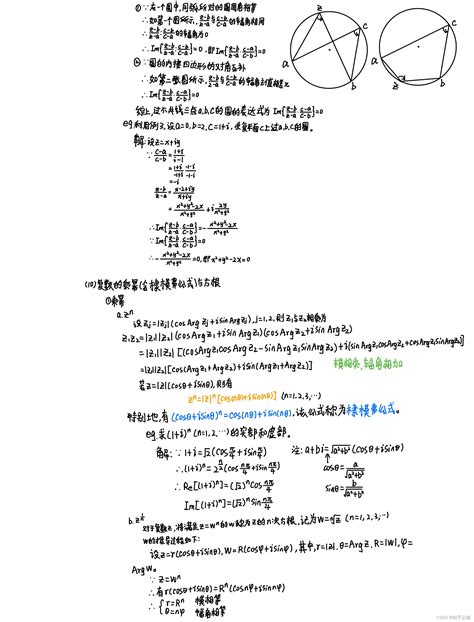 ① ∵在一个圆中,同弧所对的圆周角相等
∴如第一个图所示, (z-b)/(z-a) 与 (c-a)/(c-b) 的辐角相同
∴ (z-b)/(z-a)·(c-a)/(c-b) 的辐角为0
∴ Im[(z-b)/(z-a)·(c-a)/(c-b)]=0
② ∵圆的内接四边形的对角互补
∴如第二张图所示,
∴ Im[(z-b)/(z-a)·(c-a)/(c-b)]=0
综上,过不共线三点a,b,c的圆的表达式为 Im[(z-b)/(z-a)·(c-a)/(c-b)]=0
eg.利用例3,设a=0,b=2,c=1+i,求复平面C上过a,b,c的圆。
解:设z=x+iy
∵ (c-a)/(c-b) = (1+i)/(i-1)
= (1+i)/(-1+i)·(-1-i)/(-1-i)
= -i
(z-b)/(z-a) = (x-2+iy)/(x+iy)
= (x²+y²-2x)/(x²+y²) + i 2y/(x²+y²)
∴ Im[(z-b)/(z-a)·(c-a)/(c-b)] = -(x²+y²-2x)/(x²+y²)
∵ Im[(z-b)/(z-a)·(c-a)/(c-b)]=0
∴ -(x²+y²-2x)/(x²+y²)=0,即x²+y²-2x=0
(10)复数的乘幂(含棣模弗公式)与方根
①乘幂
a. zⁿ
设zⱼ=|zⱼ|(cosArgzⱼ+isinArgzⱼ),j=1,2,则z₁与z₂相乘为
z₁z₂=|z₁||z₂|(cosArgz₁+isinArgz₁)(cosArgz₂+isinArgz₂)
=|z₁||z₂|[(cosArgz₁cosArgz₂-sinArgz₁sinArgz₂)+i(sinArgz₁cosArgz₂+cosArgz₁sinArgz₂)]
=|z₁||z₂|[cos(Argz₁+Argz₂)+isin(Argz₁+Argz₂)] 模相乘,辐角相加
若z=|z|(cosθ+isinθ),则有
zⁿ=|z|ⁿ[cos(nθ)+isin(nθ)] (n=1,2,3,…)
特别地,有(cosθ+isinθ)ⁿ=cos(nθ)+isin(nθ),该公式称为棣模弗公式。
eg.求(1+i)ⁿ(n=1,2,…)的实部和虚部。
解: ∵1+i=√2(cosπ/4+isinπ/4) 注: a+bi=√(a²+b²)(cosθ+isinθ)
∴(1+i)ⁿ=2^(n/2)(cos nπ/4+isin nπ/4) cosθ=a/√(a²+b²)
∴Re[(1+i)ⁿ]=(√2)ⁿcos nπ/4 sinθ=b/√(a²+b²)
Im[(1+i)ⁿ]=(√2)ⁿsin nπ/4
b. z^(1/n)
对于复数z,将满足z=wⁿ的w称为z的n次方根,记为w=ⁿ√z (n=1,2,3,…)
w的推导过程如下:
设z=r(cosθ+isinθ),w=R(cosφ+isinφ),其中,r=|z|,θ=Argz,R=|w|,φ=
Argw。
∵ z=wⁿ
∴有r(cosθ+isinθ)=Rⁿ(cosnφ+isinnφ)
∴ { r=Rⁿ 模相等
θ=nφ 辐角相等
z
c
a
b
c
a
z
b